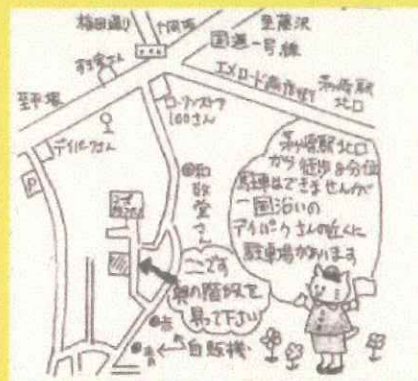 梅田通り
十間坂
至藤沢
国道一号線
エメロード商店街
茅ヶ崎駅
北口
至平塚
ローソンストア
100さん
デイパークさん
P
和敬堂さん
茅ヶ崎駅北口
から徒歩8分位
駐車はできませんが
一国沿いの
デイパークさんの近くに
駐車場があります
ここです
奥の階段を
昇って下さい
赤
青
自販機